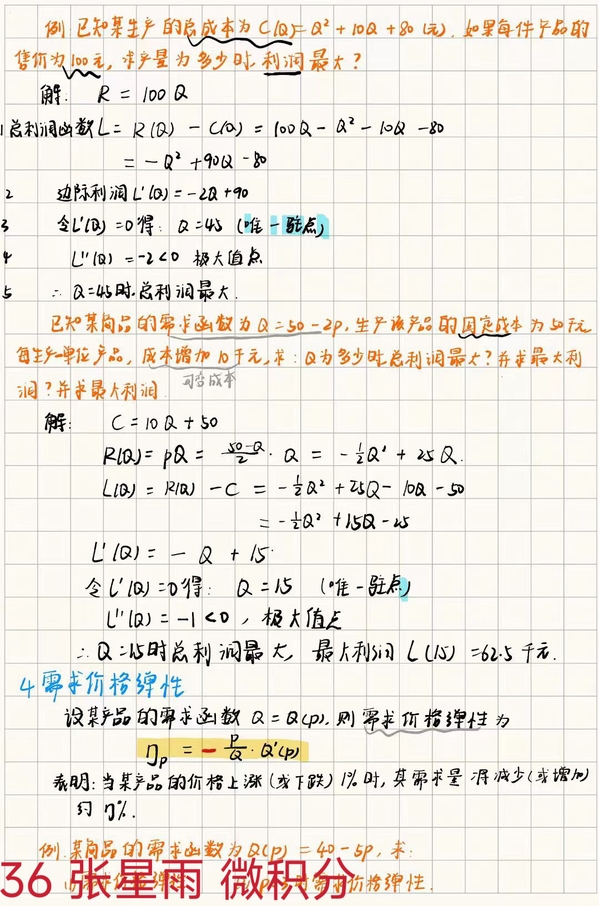 例 已知某生产的总成本为 C(Q)= Q² + 10Q + 80 (元), 如果每件产品的
售价为100元, 求产量为多少时, 利润最大?
解: R = 100Q
1 总利润函数 L = R(Q) - C(Q) = 100Q - Q² - 10Q - 80
= -Q² + 90Q - 80
2 边际利润 L'(Q) = -2Q + 90
3 令L'(Q) = 0 得: Q = 45 (唯一驻点)
4 L''(Q) = -2 < 0 极大值点
5 ∴ Q = 45时, 总利润最大.
已知某商品的需求函数为 Q = 50 - 2p, 生产该产品的固定成本为 50千元
每生产一单位产品, 成本增加 10千元, 求: Q为多少时总利润最大? 并求最大利
润? 并求最大利润.
可变成本
解: C = 10Q + 50
R(Q) = pQ = 50-Q/2 · Q = -1/2Q² + 25Q.
L(Q) = R(Q) - C = -1/2Q² + 25Q - 10Q - 50
= -1/2Q² + 15Q - 25
L'(Q) = - Q + 15.
令 L'(Q) = 0得: Q = 15 (唯一驻点)
L''(Q) = -1 < 0, 极大值点
∴ Q = 15时总利润最大, 最大利润 L(15) = 62.5 千元.
4 需求价格弹性
设某产品的需求函数 Q = Q(p), 则需求价格弹性为
ηp = - P/Q · Q'(p)
表明: 当某产品的价格上涨 (或下跌) 1% 时, 其需求量将减少 (或增加)
约 η%.
例. 某商品的需求函数为 Q(p) = 40 - 5p, 求:
需求价格弹性.
36 张星雨 微积分